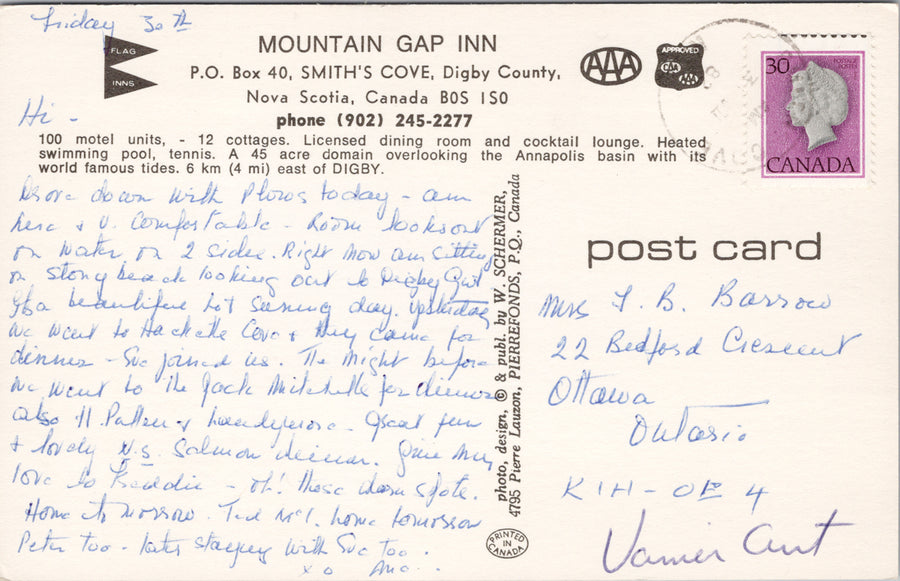 Friday 30th
FLAG
INNS
MOUNTAIN GAP INN
P.O. Box 40, SMITH'S COVE, Digby County,
Nova Scotia, Canada B0S 1S0
phone (902) 245-2277
AAA
APPROVED
CAA
AAA
30
POSTAGE
POSTES
CANADA
Hi -
100 motel units, - 12 cottages. Licensed dining room and cocktail lounge. Heated
swimming pool, tennis. A 45 acre domain overlooking the Annapolis basin with its
world famous tides. 6 km (4 mi) east of DIGBY.
Drove down with today - am
here & v. comfortable - Room looks out
on water, on 2 sides. Right now am sitting
on stony beach looking out to Digby Gut
Its a beautiful hot day. yesterday
we went to Hacketts Cove & they came for
dinner - Sue joined us. The night before
we went to the Jack Mitchells for dinner
also H Patton & . Great fun
& lovely N.S. Salmon dinner. Give my
love to Freddie - oh! these
Home tomorrow. Ted home tomorrow
Peter too - Kate staying with Sue too.
xo
photo, design, © & publ. by W. SCHERMER,
4795 Pierre Lauzon, PIERREFONDS, P.Q., Canada
PRINTED
IN
CANADA
post card
Mrs T. B. Barrow
22 Bedford Crescent
Ottawa
Ontario
K1H - 0E4
Vanier